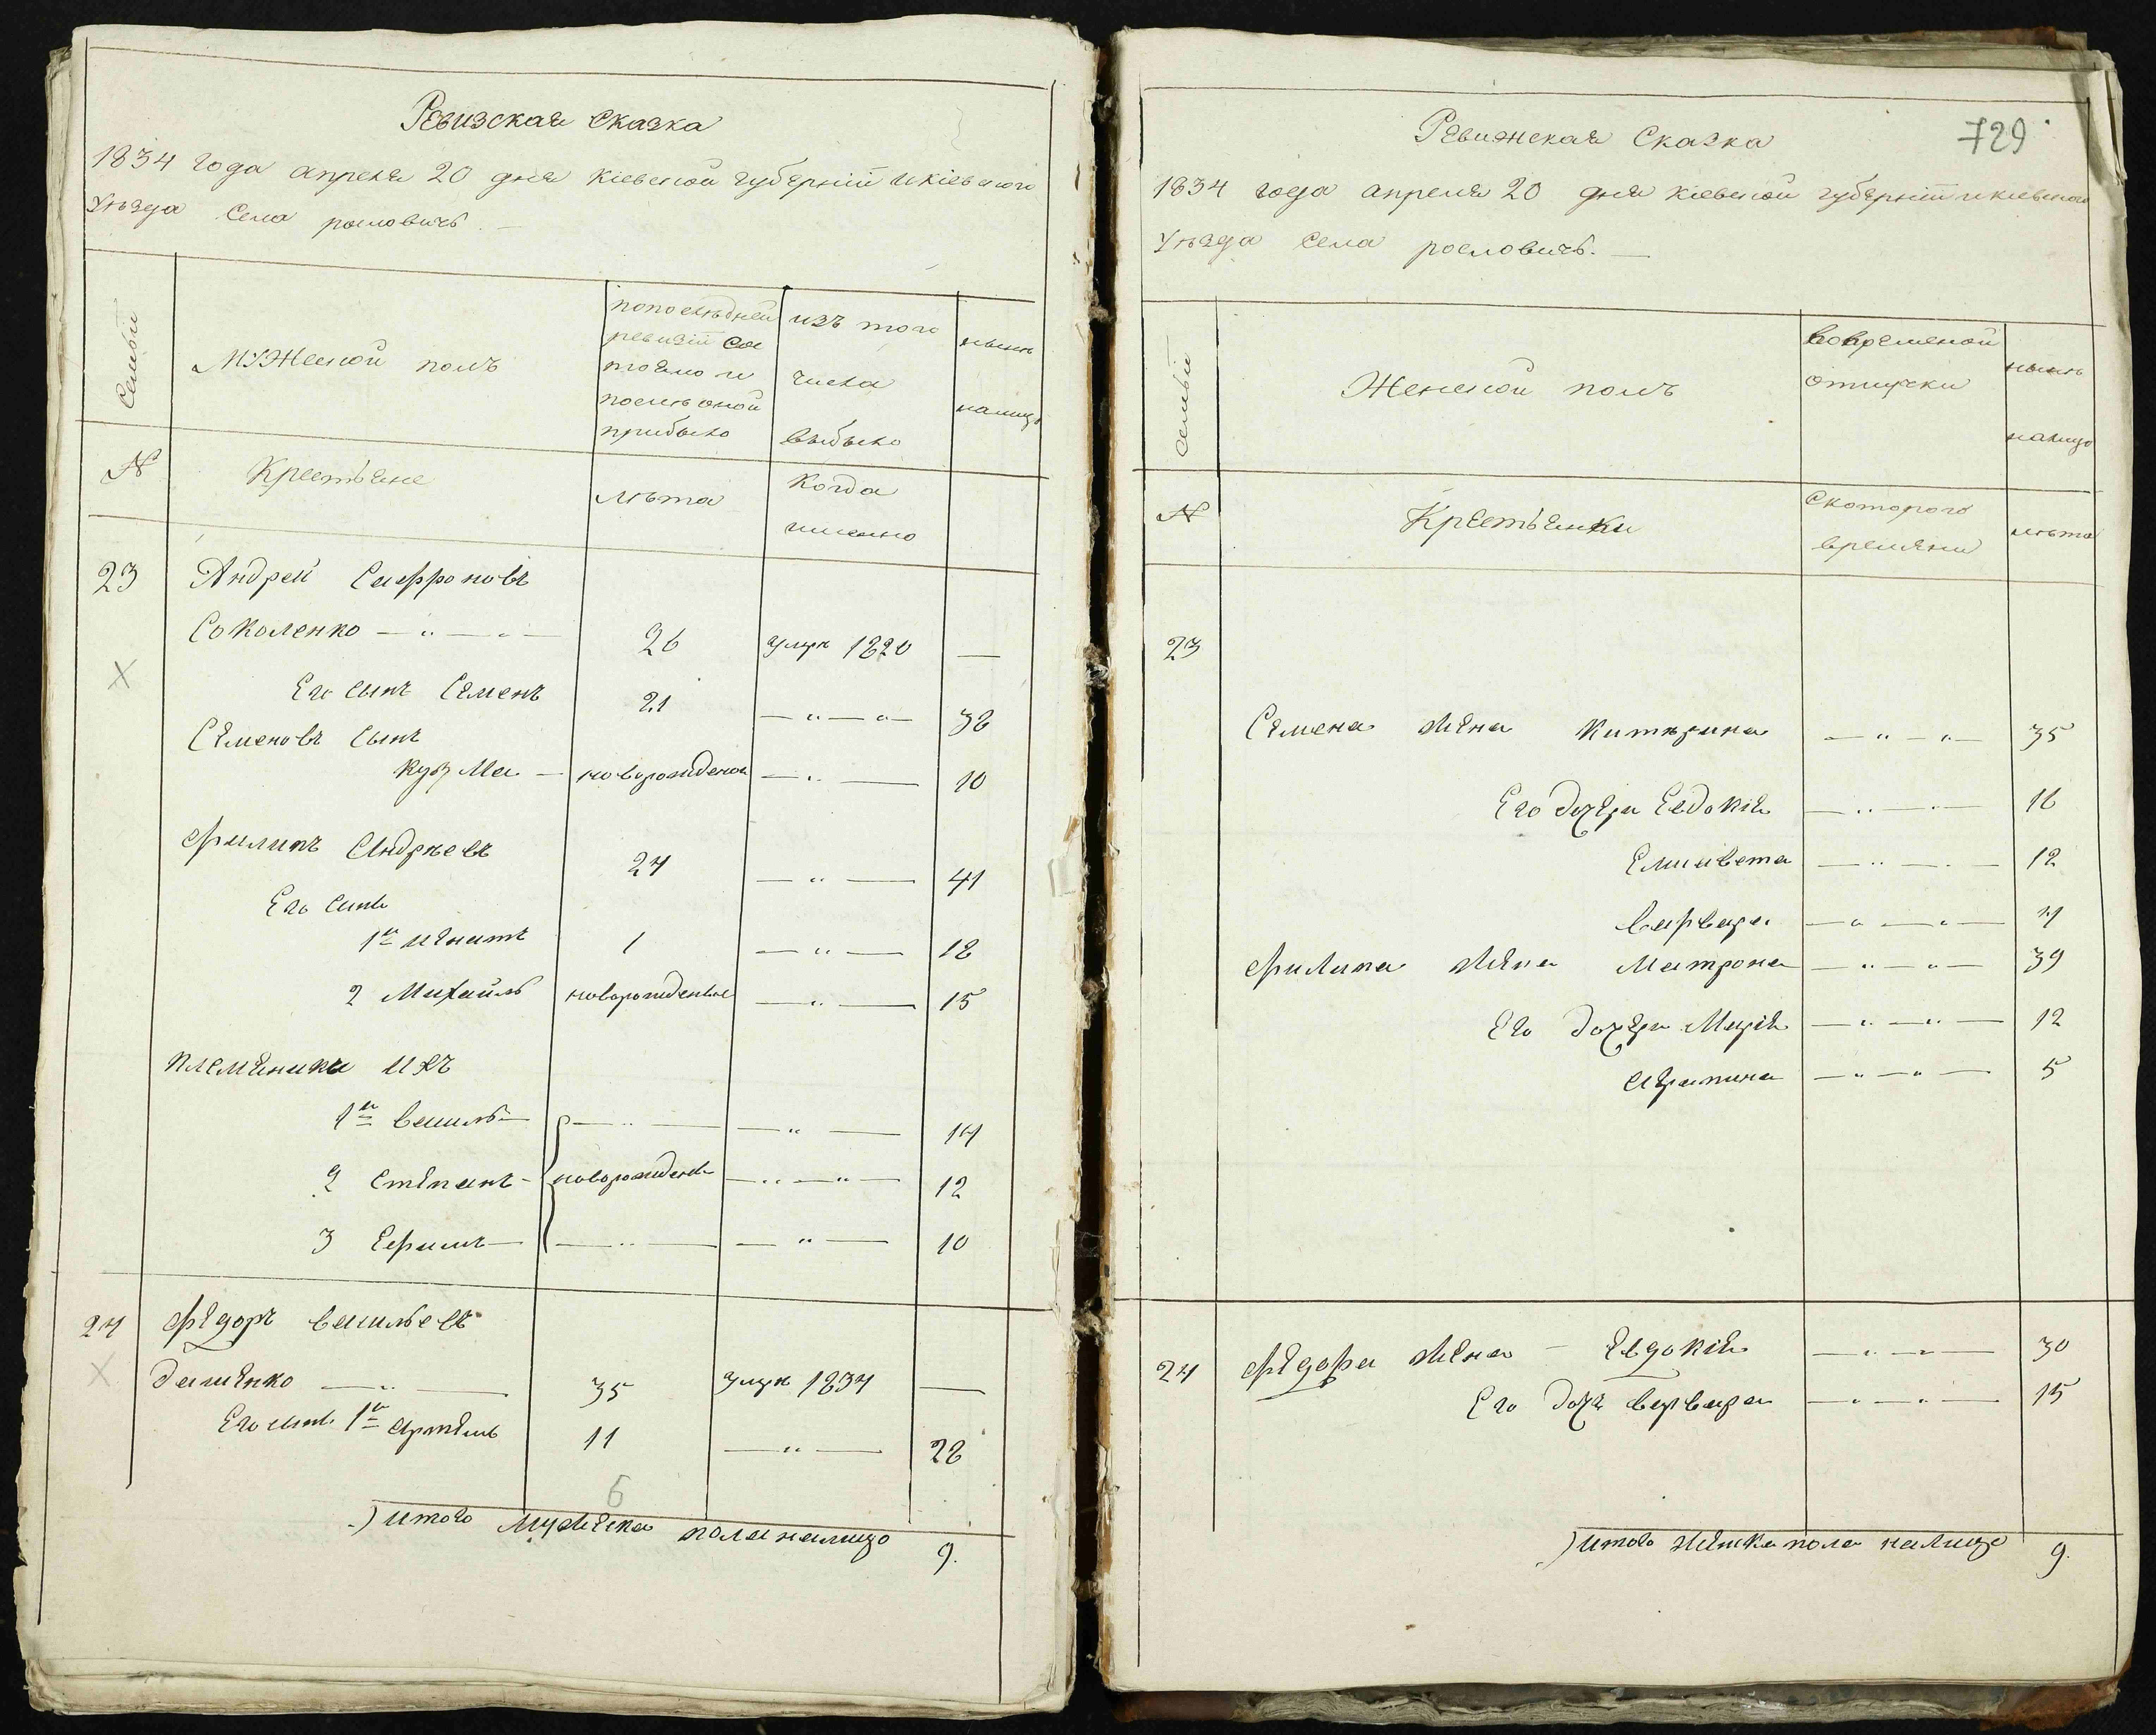 Ревизская сказка
1834 года апреля 20 дня кіевской губерніи и кіевского
Уѣзда села рословичъ. —
Семьи
Мужеской полъ
попоследней
ревизіи сос
тояло и
послѣ оной
прибыло
изъ того
числа
выбыло
нынѣ
налицо
№
Крестьяне
лѣта
Когда
имянно
23 Андрей Сафроновъ
Соколенко — " — " — 26 умре 1820 —
Его сынъ Семенъ 21 — " — " — 38
Семеновъ сынъ
Кузма — новорожденой — " — 10
Филипъ Андрѣевъ 24 — " — 41
Его сини
1й Игнатъ 1 — " — 18
2 Михаилъ новорожденные — " — 15
племяники ихъ
1й Василь — — " — — " — 14
2 Степанъ — новорожден — " — " — 12
3 Ефимъ — — " — — " — 10
24 Федоръ Васильевъ
Дашенко — " — 35 умре 1834 —
Его сини 1й Артемъ 11 — " — 28
6
) итого мужеска пола налицо 9.
729
Ревижская Сказка
1834 года апреля 20 дня кіевской губерніи и кіевского
Уѣзда села рословичъ. —
Семьи
Женской полъ
вовременой
отлучки
нынѣ
налицо
№
Крестьянки
Скоторого
времяни
лѣта
23
Семена жена Катерина — " — " — 35
Его дочери Евдокія — " — " — 16
Елисавета — " — " — 12
Варвара — " — " — 4
Филипа жена Матрона — " — " — 39
Его дочери Марія — " — " — 12
Агрипина — " — " — 5
24 Федора жена — Евдокія — " — " — 30
Его дочь Варвара — " — " — 15
) итого женска пола налицо 9.